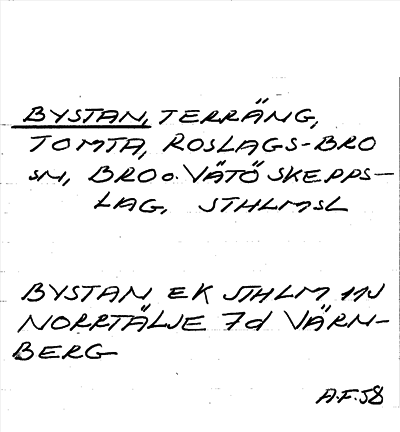 BYSTAN, TERRÄNG,
TOMTA, ROSLAGS-BRO
SN, BRO o. VÄTÖ SKEPPS-
LAG, STHLMSL
BYSTAN EK STHLM 11J
NORRTÄLJE 7d VÄRN-
BERG
A.F. 58